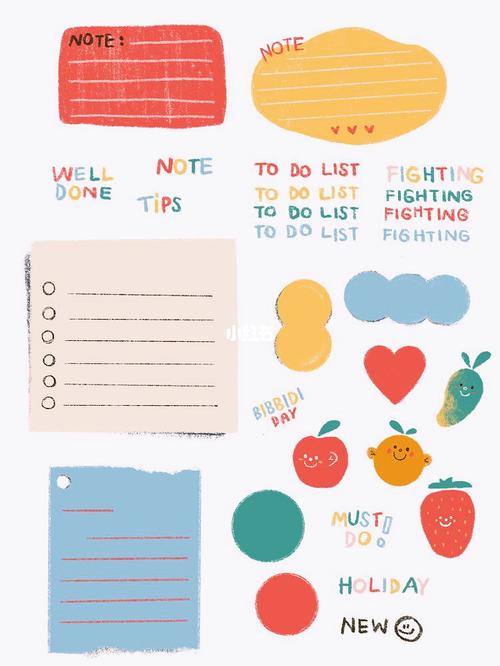 NOTE:
NOTE
WELL
DONE
NOTE
TiPS
TO DO LIST
TO DO LIST
TO DO LIST
TO DO LIST
FIGHTING
FIGHTING
FIGHTING
FIGHTING
小红书
BIBBIDI
DAY
MUST!
DO
HOLIDAY
NEW